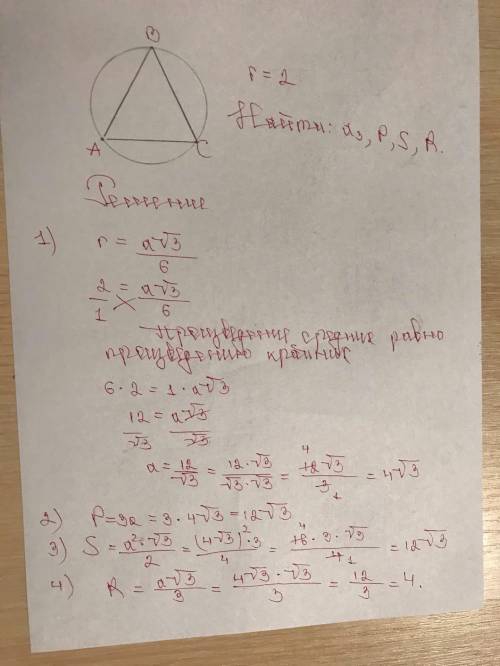 B
A
C
r = 2
Найти: a₃, P, S, R.
Решение
1) r = a√3/6
2/1 = a√3/6
Произведение средние равно
произведению крайние
6·2 = 1·a√3
12/√3 = a√3/√3
a = 12/√3 = 12·√3/√3·√3 = 12√3/3 = 4√3
4
1
2) P=3a = 3·4√3 = 12√3
3) S = a²·√3/2 = (4√3)²·3/4 = 16·3·√3/4 = 12√3
4
1
4) R = a√3/3 = 4√3·√3/3 = 12/3 = 4.